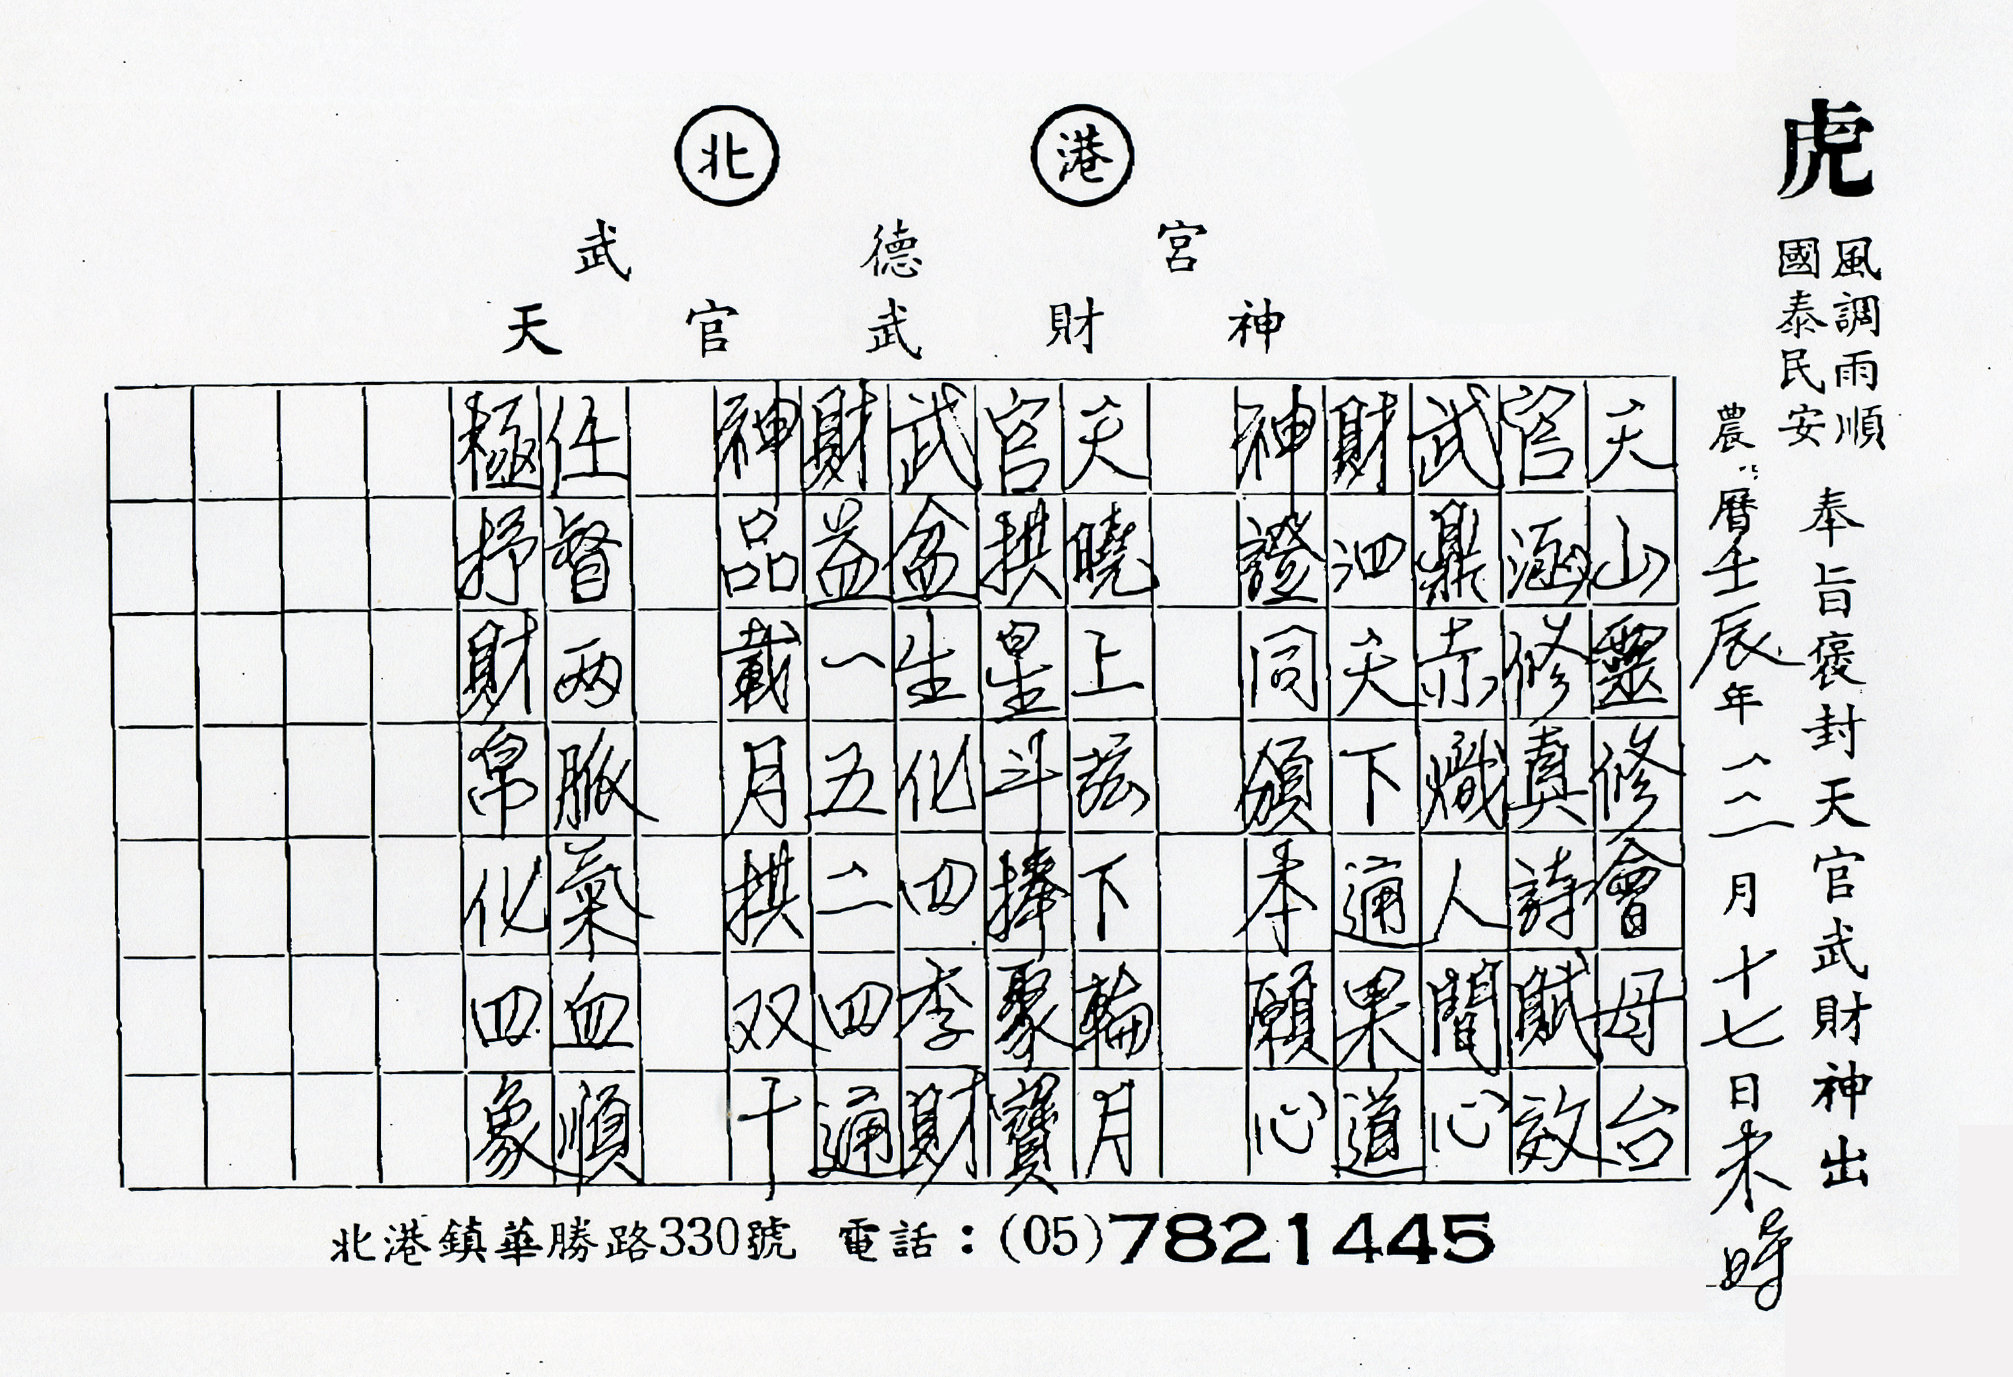 虎
風調雨順
國泰民安
奉旨褒封天官武財神出
農曆壬辰年一二月十七日未時
北港
武德宮
天官武財神
天山靈修會母台
官涵修真詩賦效
武鼎赤熾人間心
財泗天下通果道
神證同頒本願心
天曉上茲下輪月
官拱星斗捧聚寶
武盆生化四季財
財益一五二四通
神品載月拱双十
任督兩脈氣血順
極抒財帛化四象
北港鎮華勝路330號 電話：(05)7821445